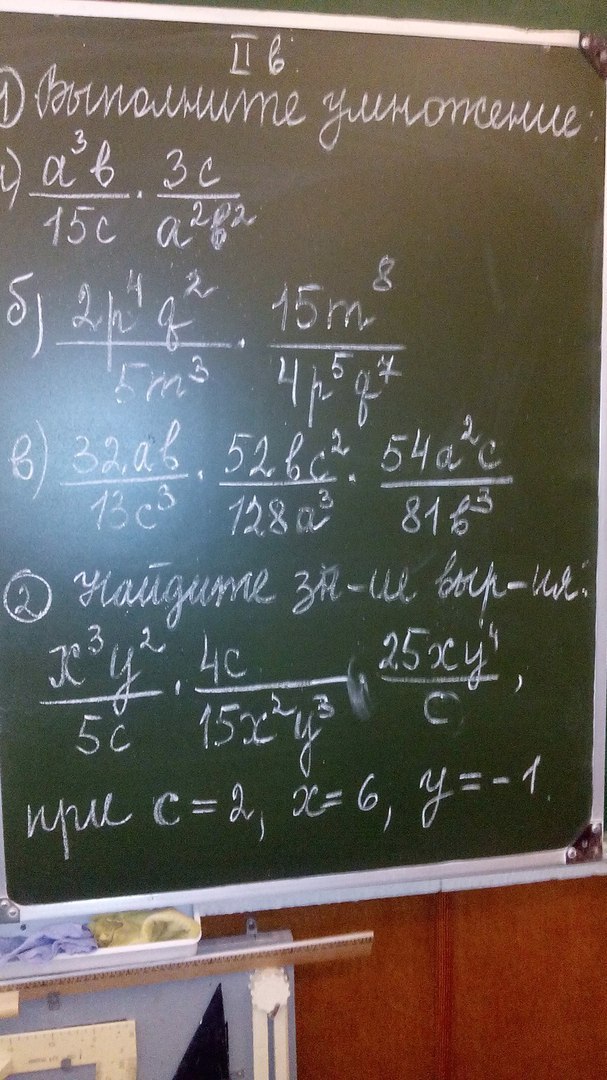 II в
① Выполните умножение:
а) a³b/15c · 3c/a²b²
б) 2p⁴q²/5m³ · 15m⁸/4p⁵q⁷
в) 32ab/13c³ · 52bc²/128a³ · 54a²c/81b³
② Найдите зн-ие выр-ия:
x³y²/5c · 4c/15x²y³ · 25xy⁴/c,
при c = 2, x = 6, y = -1.